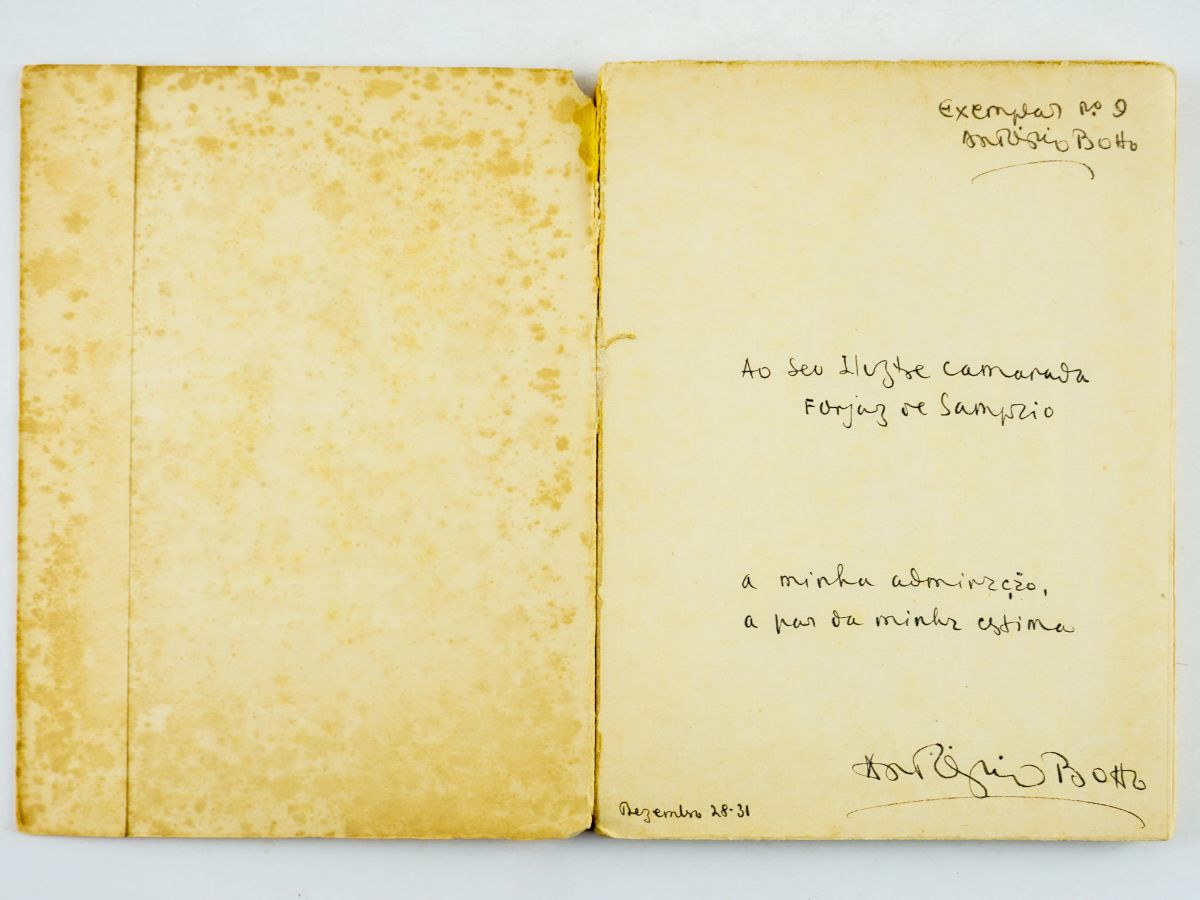 Exemplar nº 9
António Botto
Ao seu Ilustre camarada
Forjaz de Sampaio
a minha admiração,
a par da minha estima
António Botto
Dezembro 28-31